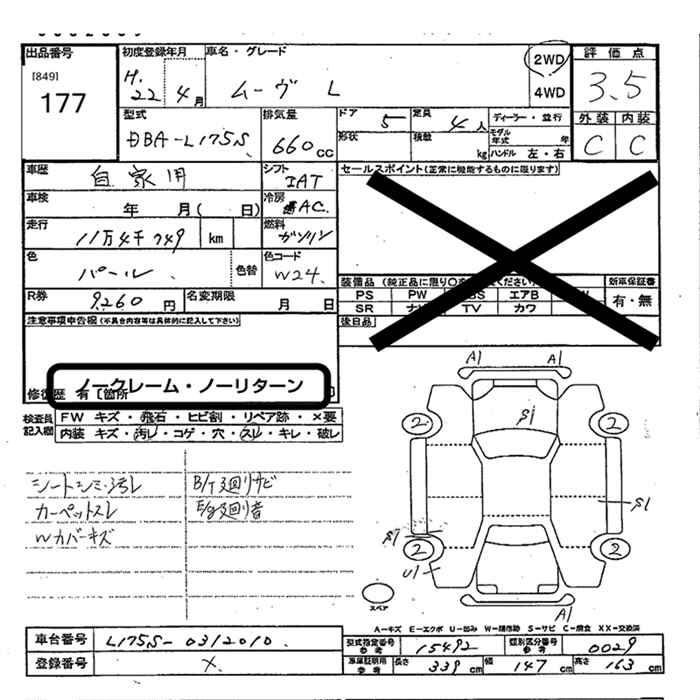 出品番号
[849]
177
初度登録年月
H.22 4月
車名・グレード
ムーヴ L
2WD
4WD
評価点
3.5
外装 内装
C C
型式
DBA-L175S
排気量
660cc
ドア 5
定員 4人
形状
積載 kg
ディーラー・並行
モデル年式 年
ハンドル 左・右
車歴 自家用
シフト IAT
セールスポイント(正常に機能するものに限ります)
車検 年 月( 日)
冷房 AC.
走行 11万4千749 km
燃料 ガソリン
色 パール
色替
色コード W24.
装備品
新車保証書
PS PW エアB
SR TV カワ
有・無
R券 9,260円
名変期限 月 日
後日品
注意事項申告欄(不具合内容等は具体的に記入して下さい)
ノークレーム・ノーリターン
修復歴 有 〔箇所
検査員記入欄
FW キズ・飛石・ヒビ割・リペア跡・×要
内装 キズ・汚レ・コゲ・穴・スレ・キレ・破レ
シートシミ・汚レ
B/T廻リサビ
カーペットスレ
E/g廻リ音
Wカバーキズ
A1 A1
S1
2 2
S1
S1
2 2
U1
A1
スペア
A-キズ E-エクボ U-凹み W-補修跡 S-サビ C-腐食 XX-交換済
車台番号 L175S-0312010.
型式指定番号 参考 15492
類別区分番号 参考 0029
登録番号 X.
車庫証明用 参考 長さ 339 cm 幅 147 cm 高さ 163 cm